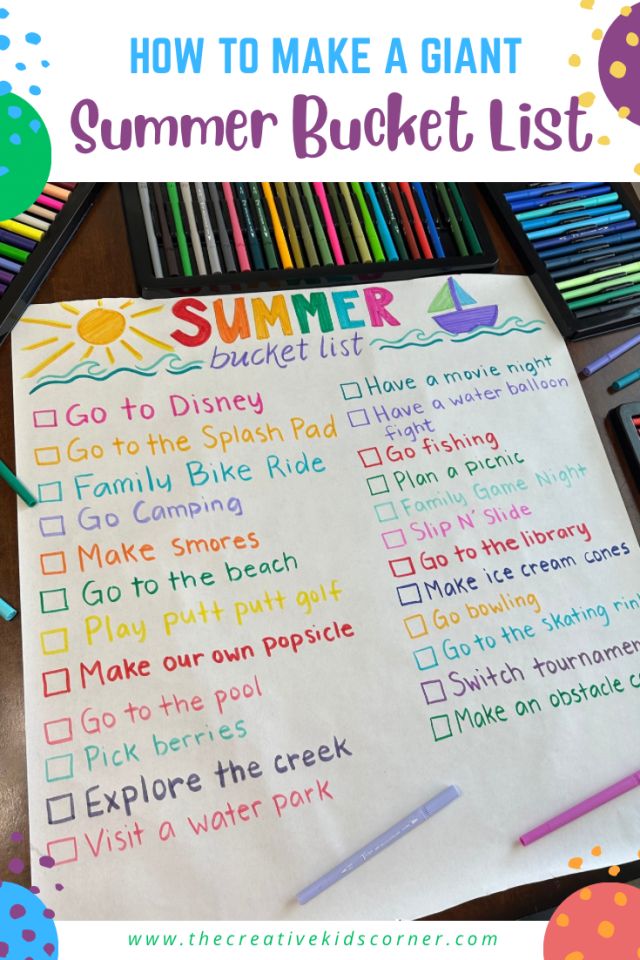 HOW TO MAKE A GIANT
Summer Bucket List
SUMMER
bucket list
Go to Disney
Go to the Splash Pad
Family Bike Ride
Go Camping
Make smores
Go to the beach
Play putt putt golf
Make our own popsicle
Go to the pool
Pick berries
Explore the creek
Visit a water park
Have a movie night
Have a water balloon
fight
Go fishing
Plan a picnic
Family Game Night
Slip N' Slide
Go to the library
Make ice cream cones
Go bowling
Go to the skating
Switch
Make an obstacle
www.thecreativekidscorner.com